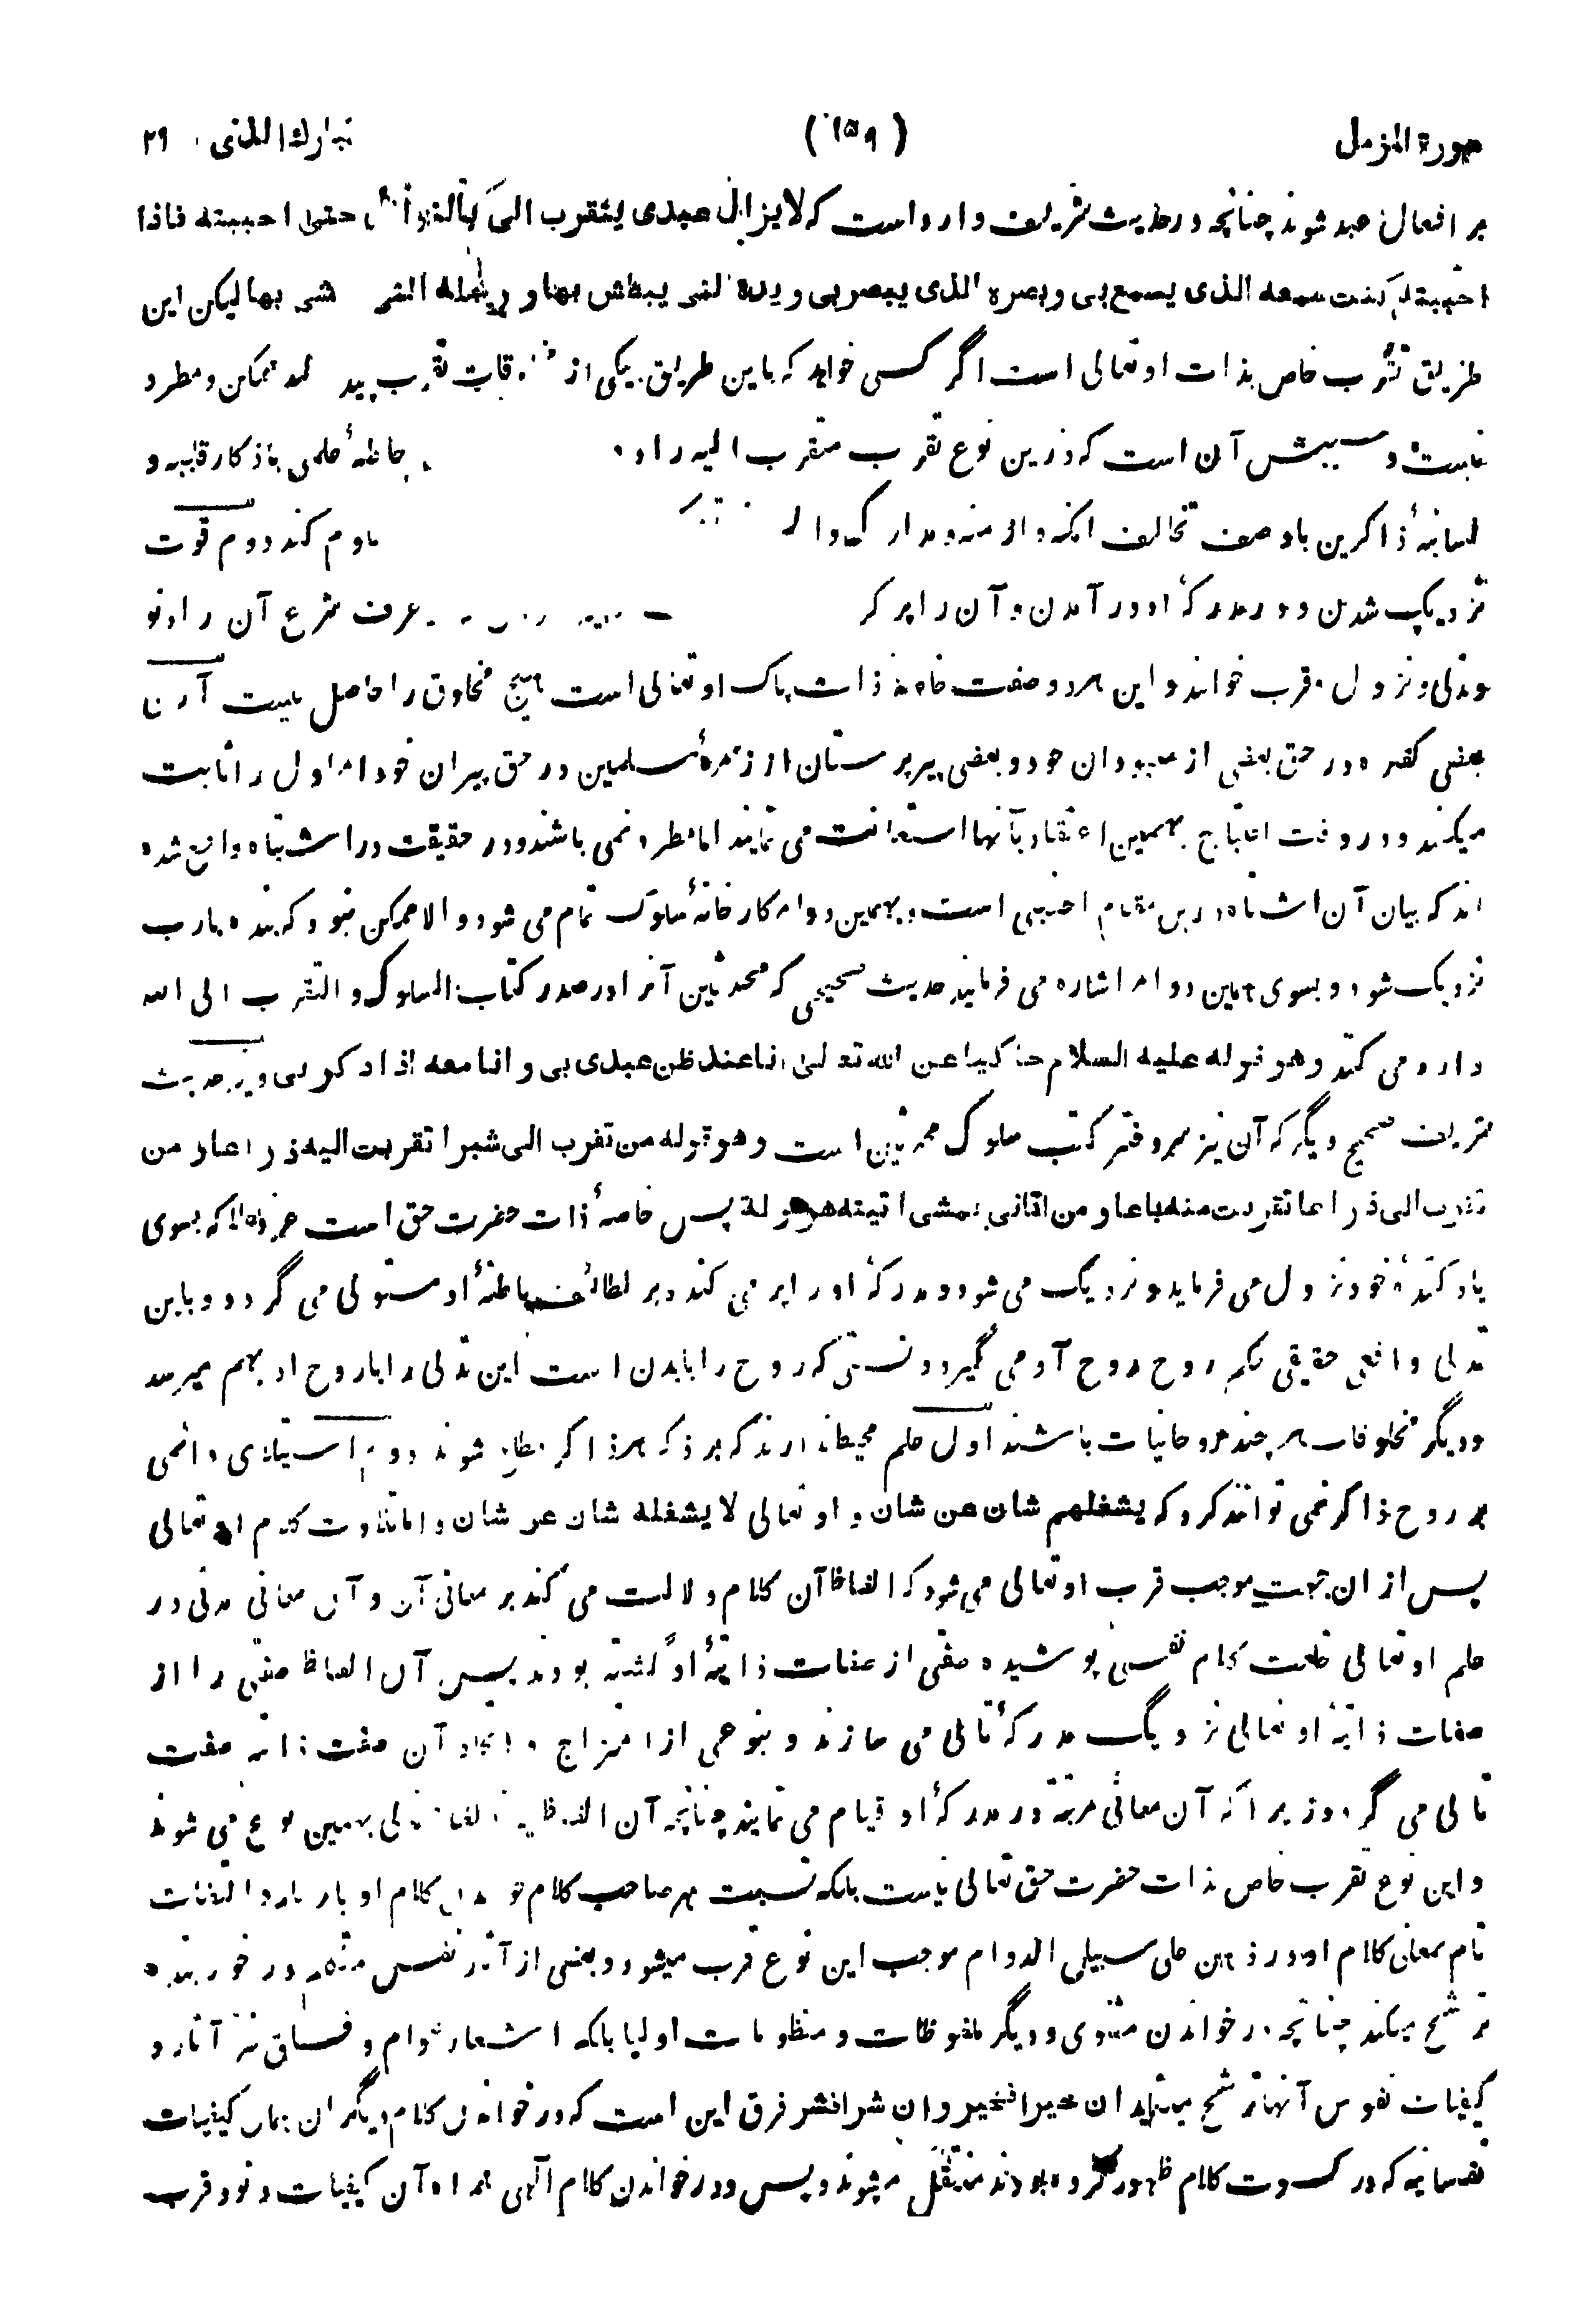 سورة المزمل (۱۵۹) تبارك الذى ۲۹
بر افعال عبد شوند چنانچه در حدیث شریف وارد است که لایزال عبدی یتقرب الیّ بالنوافل حتی احببته فاذا
احببته کنت سمعه الذی یسمع بی و بصره الذی یبصر بی و یده التی یبطش بها و رجله التی بها لیکن این
طریق تقرب خاص بذات او تعالی است اگر کسی خواهد که باین طریق بیکی از تقرب ممکن و مطرد
نیست و سببش آن است که درین نوع تقرب متقرب الیه را احاطهٔ علمی باذکار قلبیه و
لسانیهٔ ذاکرین با وصف تخالف امکنه و ازمنه و مدارک معلوم کند دوم قوت
نزدیک شدن و در مدرکهٔ او در آمدن و آن را پر کر عرف شرع آن را دنو
و تدلی و نزول و قرب خوانند و این هر دو صفت خاصهٔ ذات پاک او تعالی است هیچ مخلوق را حاصل نیست آری
بعضی کفره در حق بعضی از معبودان خود و بعضی پیر پرستان از زمرهٔ مسلمین در حق پیران خود امر اول را ثابت
میکنند و در وقت احتیاج بهمین اعتقاد بآنها استعانت می نمایند اما مطرد نمی باشند و در حقیقت در اشتباه واقع شده
اند که بیان آن اشتباه درین مقام اجنبی است و بهمین دو امر کارخانهٔ سلوک تمام می شود و الا ممکن نبود که بنده بارب
نزدیک شود و بسوی همین دو امر اشاره می فرمایند حدیث صحیحی که محدثین آنرا در صدر کتاب السلوک و التقرب الی الله
دارد می کنند و هو قوله علیه السلام حاکیا عن الله تعالی انا عند ظن عبدی بی و انا معه اذا ذکرنی و نیز حدیث
شریف صحیح دیگر که آن نیز سر دفتر کتب سلوک محدثین است و هو قوله من تقرب الی شبرا تقربت الیه ذراعا و من
تقرب الی ذراعا تقربت منه باعا و من اتانی یمشی اتیته هرولة پس خاصهٔ ذات حضرت حق است که بسوی
یاد کنندهٔ خود نزول می فرماید و نزدیک می شود و مدرکهٔ او را پر می کند و بر لطائف باطنهٔ او مستولی می گردد و باین
تدلی واقعی حقیقی حکم روح روح آدمی گیرد و نسبتی که روح را بابدن است این تدلی را با روح او بهم میرسد
و دیگر مخلوقات هر چند روحانیات باشند اول علم محیط ندارند که بر ذکر هر ذاکر مطلع شوند دوم استیلای دائمی
بر روح ذاکر نمی توانند کرد که یشغلهم شان عن شان و او تعالی لا یشغله شان عن شان و اما تلاوت کلام او تعالی
پس از ان جهت موجب قرب او تعالی می شود که الفاظ آن کلام دلالت می کند بر معانی آن و آن معانی مدتی در
علم او تعالی خلعت کلام نفسی پوشیده صفتی از صفات ذاتیهٔ او گشته بودند پس آن الفاظ صفتی را از
صفات ذاتیهٔ او تعالی نزدیک مدرکهٔ تالی می سازند و بنوعی از امتزاج و اتحاد آن صفت ذاتیه صفت
تالی می گردد زیرا که آن معانی مرتبه در مدرکهٔ او قیام می نمایند چنانچه آن الفاظ تالی بهمین نوع می شوند
و این نوع تقرب خاص بذات حضرت حق تعالی نیست بلکه نسبت بهر صاحب کلام کلام او بار بار و التفات
تام بمعانی کلام او در ذهن علی سبیل الدوام موجب این نوع قرب میشود و بعضی از آثار نفس متکلم در خواننده
ترشح میکند چنانچه در خواندن مثنوی و دیگر ملفوظات و منظومات اولیا بلکه اشعار عوام و فساق نیز آثار و
کیفیات نفوس آنها ترشح میکند ان خیرا فخیر و ان شرا فشر فرق این است که در خواندن کلام دیگران همان کیفیات
نفسانیه که در کسوت کلام ظهور کرده بودند منتقل میشوند و پس و در خواندن کلام آلهی همراه آن کیفیات دنو و قرب